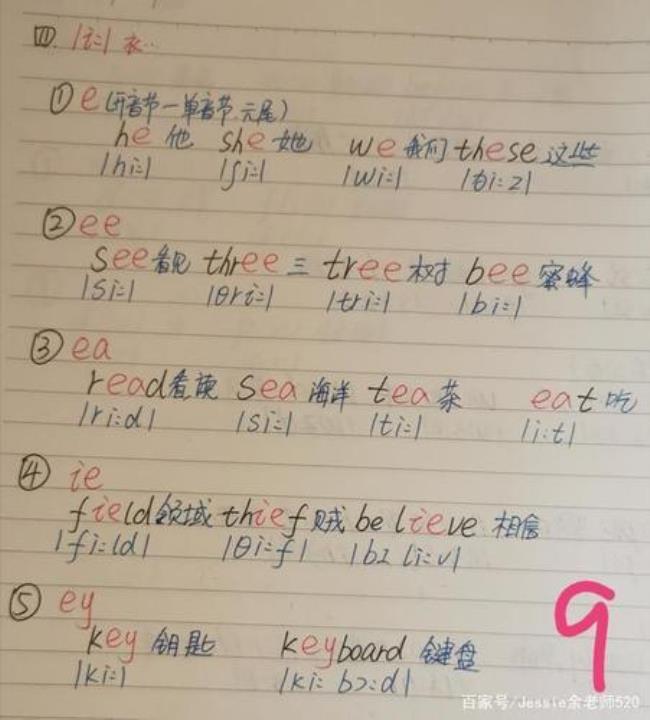 ① e (开音节一单音节.元尾)
he 他 she 她 we 我们 these 这些
/hi:/ /ʃi:/ /wi:/ /ði:z/
② ee
see 看见 three 三 tree 树 bee 蜜蜂
/si:/ /θri:/ /tri:/ /bi:/
③ ea
read 看读 sea 海洋 tea 茶 eat 吃
/ri:d/ /si:/ /ti:/ /i:t/
④ ie
field 领域 thief 贼 believe 相信
/fi:ld/ /θi:f/ /bɪ li:v/
⑤ ey
key 钥匙 keyboard 键盘
/ki:/ /ki: bɔ:d/
9
百家号/Jessie余老师520